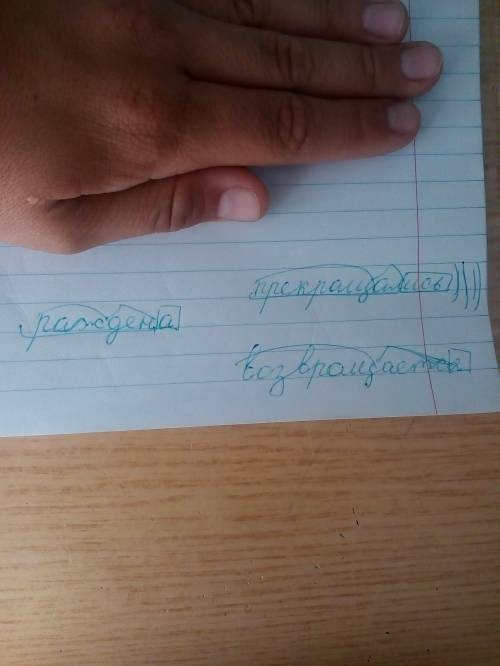 прекращались
раждена
возвращается